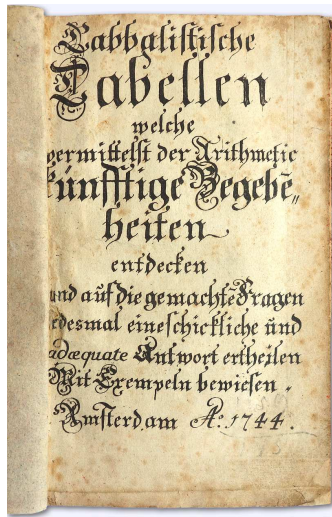 Cabbalistische
Tabellen
welche
vermittelst der Arithmetic
künfftige Begebē„
heiten
entdecken
und auf die gemachtē Fragen
iedesmal eine schickliche und
adæquate Antwort ertheilen
Mit Exempeln bewiesen.
Amsterdam Aº: 1744.